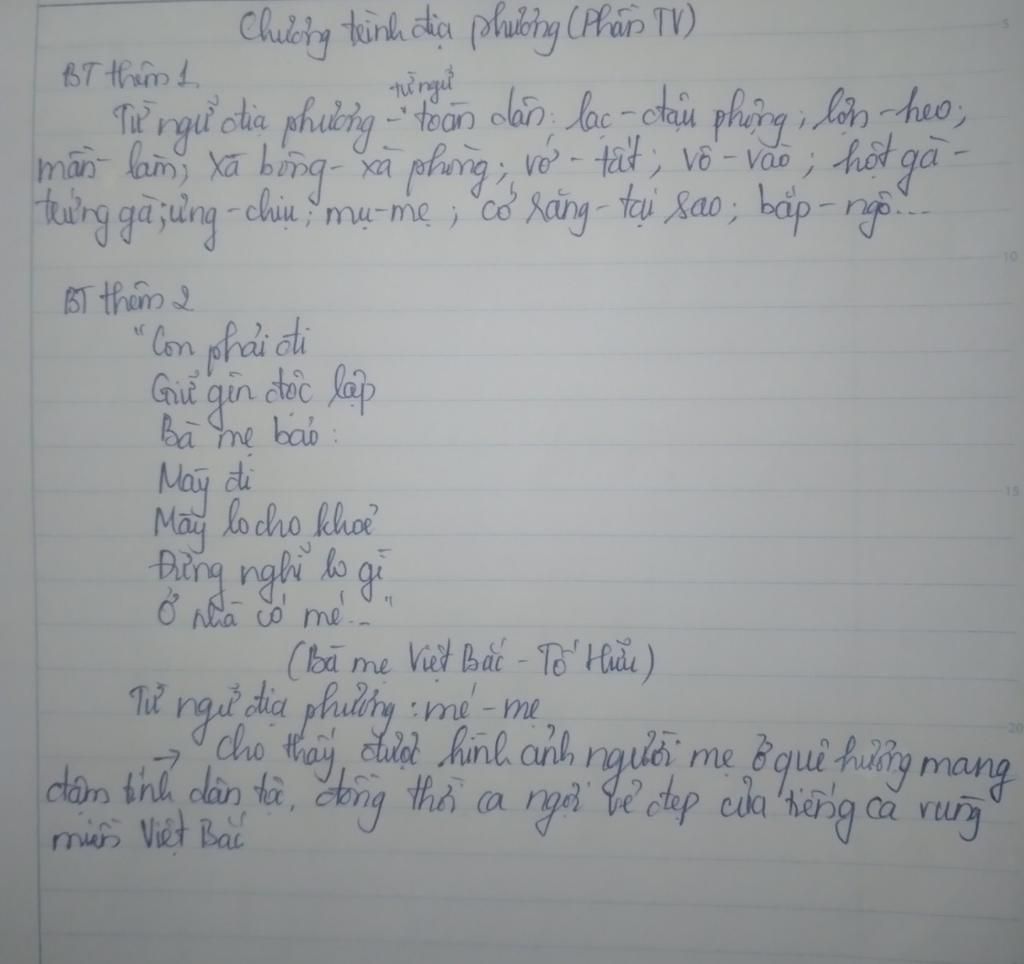 Chương trình địa phương (Phần TV)
BT thêm 1
từ ngữ
Từ ngữ địa phương - toàn dân: lạc - đậu phộng; lợn - heo;
mần - làm; xà bông - xà phòng; vớ - tất; vô - vào; hột gà -
trứng gà; ưng - chịu; mụ - mẹ; cớ răng - tại sao; bắp - ngô...
BT thêm 2
"Con phải đi
Giữ gìn độc lập
Bà mẹ bảo:
Mày đi
Mày lo cho khoẻ
Đừng nghĩ lo gì
Ở nhà có mé..."
(Bà mẹ Việt Bắc - Tố Hữu)
Từ ngữ địa phương: mé - mẹ
→ Cho thấy được hình ảnh người mẹ ở quê hương mang
đậm tính dân tộc, đồng thời ca ngợi vẻ đẹp của tiếng ca vùng
miền Việt Bắc